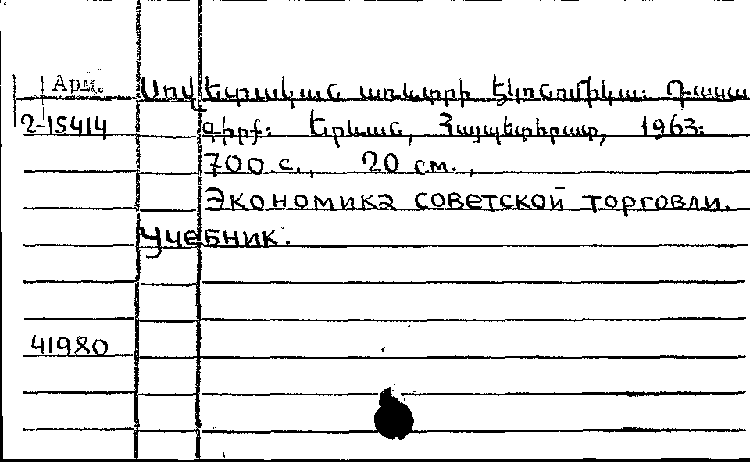 Арм. Սովետական առևտրի էկոնոմիկա: Դասա
2-15414 գիրք: Երևան, Հայպետհրատ, 1963:
700 с., 20 см.,
Экономика советской торговли.
Учебник.
41980